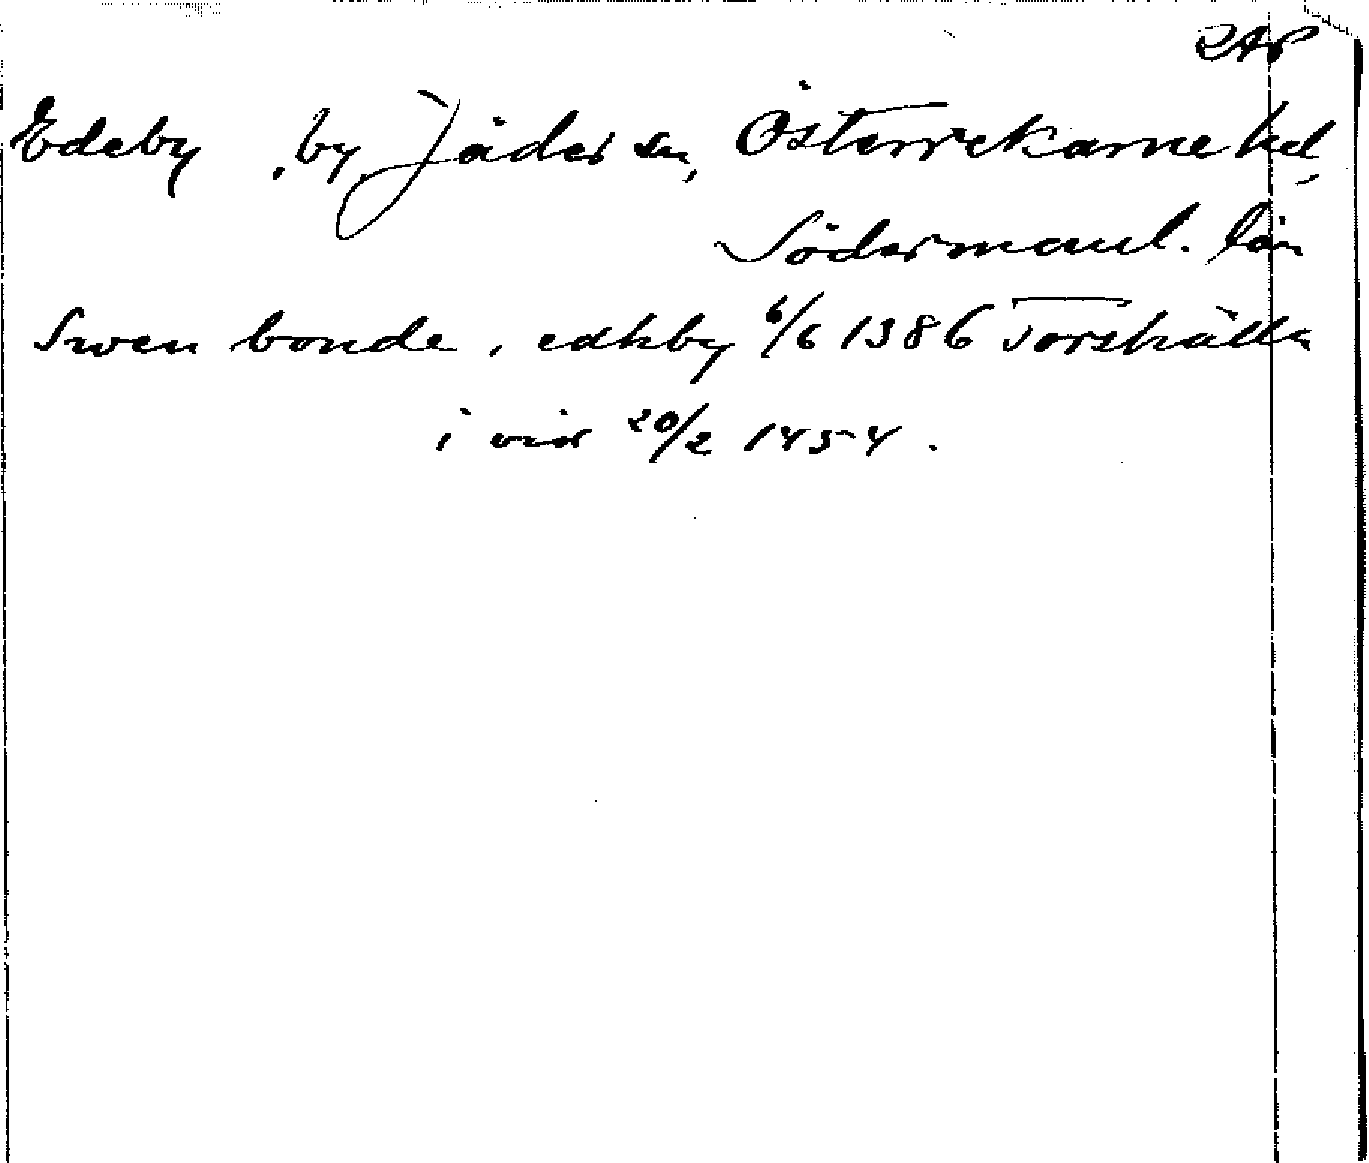 RAP
Edeby , by, Jäders sn, Österrekarne hd,
Södermanl. län
Swen bonde , edhby 6/6 1386 Torshälla
i vid 20/2 1454 .